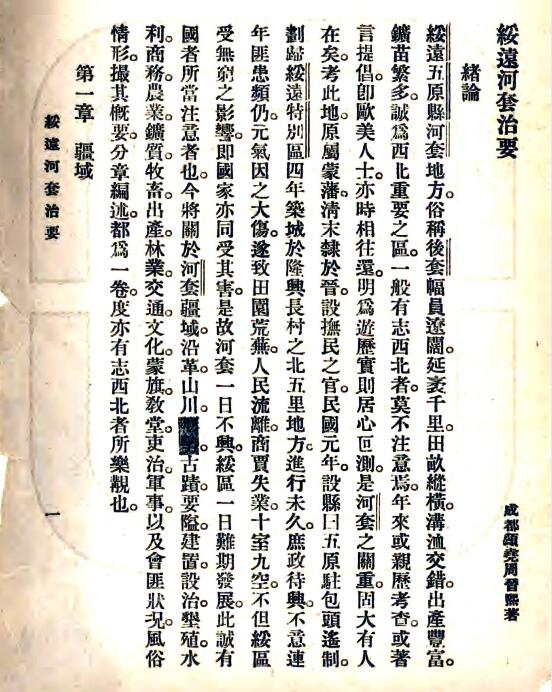 綏遠河套治要
成都頌堯周晉熙著
緒論
綏遠五原縣河套地方。俗稱後套。幅員遼闊。延袤千里。田畝縱橫。溝洫交錯。出產豐富。
鑛苗繁多。誠爲西北重要之區。一般有志西北者。莫不注意焉。年來或親歷考查。或著
言提倡。卽歐美人士。亦時相往還。明爲遊歷。實則居心叵測。是河套之關重。固大有人
在矣。考此地。原屬蒙藩。淸末隸於晉。設撫民之官。民國元年。設縣曰五原。駐包頭遙制。
劃歸綏遠特別區。四年。築城於隆興長村之北五里地方。進行未久。庶政待興。不意連
年匪患頻仍。元氣因之大傷。遂致田園荒蕪。人民流離。商賈失業。十室九空。不但綏區
受無窮之影響。卽國家亦同受其害。是故河套一日不興。綏區一日難期發展。此誠有
國者所當注意者也。今將關於河套疆域。沿革。山川。古蹟。要隘。建置。設治。墾殖。水
利。商務。農業。鑛質。牧畜。出產。林業。交通。文化。蒙旗。敎堂。吏治。軍事。以及會匪狀况。風俗
情形。撮其概要。分章編述。都爲一卷。度亦有志西北者所樂覩也。
第一章 疆域
綏遠河套治要 一